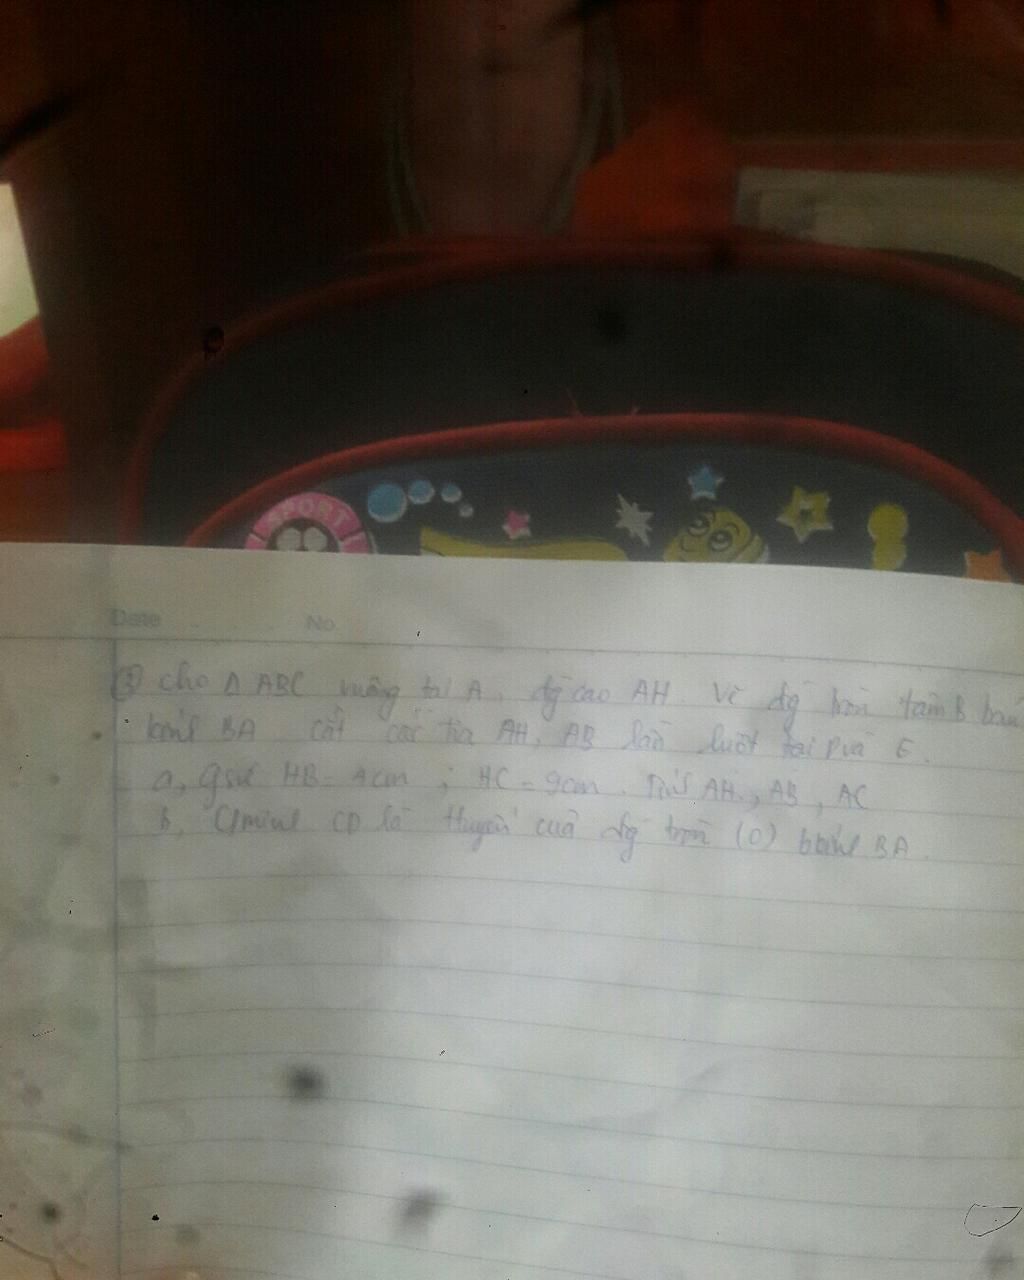 SPORT
Date No
③ cho Δ ABC vuông tại A. đg cao AH. Vẽ đg tròn tâm B bán
kính BA cắt các tia AH, AB lần lượt tại D và E.
a, gsử HB = 4cm ; HC = 9cm. Tính AH, AB, AC
b, C/minh CD là t tuyến của đg tròn (O) bkính BA.